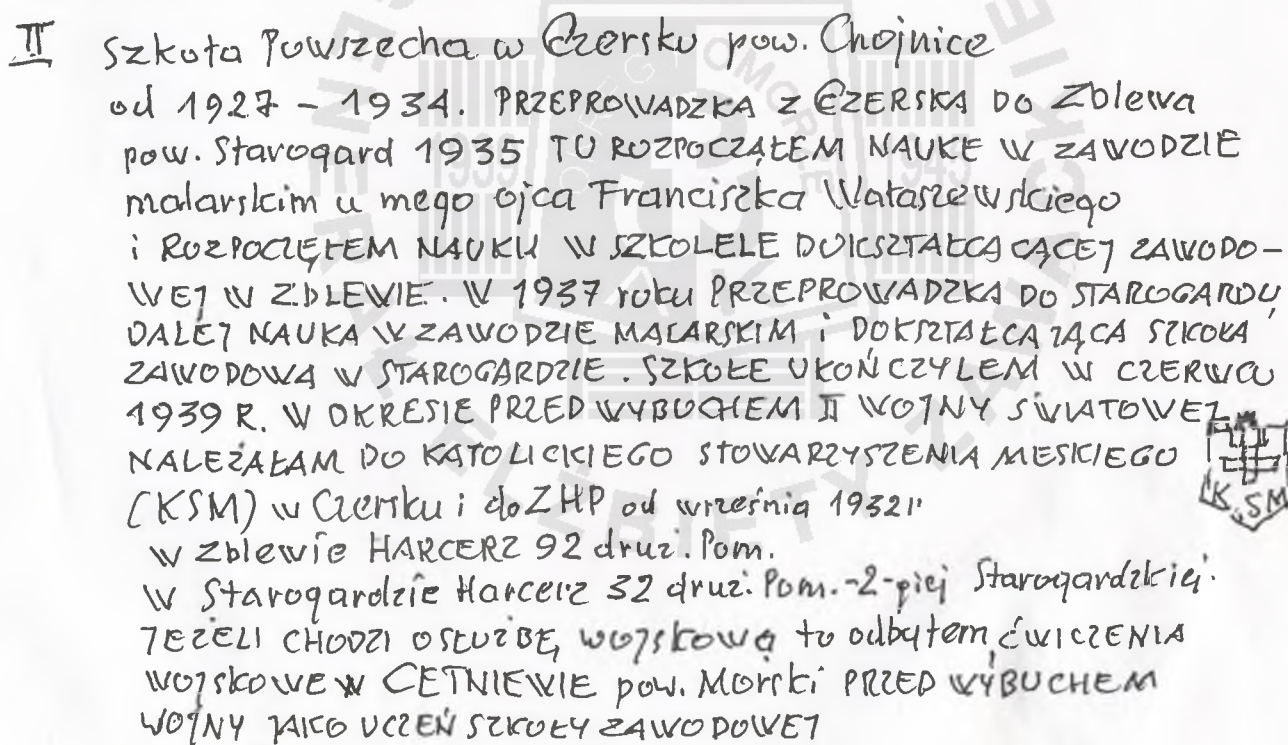 II Szkoła Powszecha w Czersku pow. Chojnice
od 1927 - 1934. PRZEPROWADZKA z CZERSKA DO Zblewa
pow. Starogard 1935 TU ROZPOCZĄŁEM NAUKE W ZAWODZIE
malarskim u mego ojca Franciszka Wałaszewskiego
i ROZPOCZĘŁEM NAUKU W SZKOLELE DOKSZTAŁCĄCĄCEJ ZAWODO-
WEJ W ZBLEWIE. W 1937 roku PRZEPROWADZKA DO STAROGARDU,
DALEJ NAUKA W ZAWODZIE MALARSKIM i DOKSZTAŁCAJĄCA SZKOŁA
ZAWODOWA W STAROGARDZIE. SZKOŁE UKOŃCZYLEM W CZERWCU
1939 R. W OKRESIE PRZED WYBUCHEM II WOJNY SWIATOWEJ
NALEŻAŁAM DO KATOLICKIEGO STOWARZYSZENIA MESKIEGO
(KSM) w Czersku i do ZHP od września 1932 r.
K.SM
W Zblewie HARCERZ 92 druż. Pom.
W Starogardzie Harcerz 32 druż. Pom. -2-giej Starogardzkiej.
JEŻELI CHODZI O SŁUŻBĘ wojskową to odbyłem ćwiczenia
WOJSKOWE W CETNIEWIE pow. Morski PRZED WYBUCHEM
WOJNY JAKO UCZEŃ SZKOŁY ZAWODOWEJ
1939
1945
ELŻBIETY ZAWACKIEJ